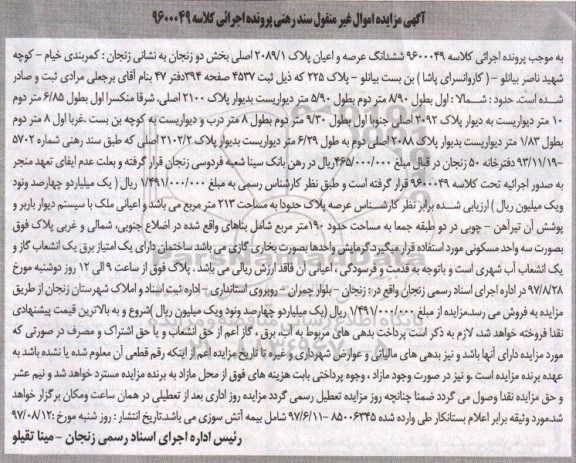 آگهی مزایده اموال غیر منقول سند رهنی پرونده اجرائی کلاسه ۹۶۰۰۰۴۹
به موجب پرونده اجرائی کلاسه ۹۶۰۰۰۴۹ ششدانگ عرصه و اعیان پلاک ۲۰۸۹/۱ اصلی بخش دو زنجان به نشانی زنجان : کمربندی خیام - کوچه
شهید ناصر بیانلو - ( کاروانسرای پاشا ) بن بست بیانلو - پلاک ۲۲۵ که ذیل ثبت ۴۵۳۷ صفحه ۳۹۴دفتر ۴۷ بنام آقای برجعلی مرادی ثبت و صادر
شده است. حدود : شمالا : اول بطول ۸/۹۰ متر دوم بطول ۵/۹۰ متر دیواریست بدیوار پلاک ۲۱۰۰ اصلی. شرقا منکسرا اول بطول ۶/۸۵ متر دوم
۱۰ متر دیواریست به دیوار پلاک ۲۰۹۲ اصلی جنوبا اول بطول ۹/۳۰ متر دوم بطول ۸ متر درب و دیواریست به کوچه بن بست .غربا اول ۸ متر دوم
بطول ۱/۸۳ متر دیواریست بدیوار پلاک ۲۰۸۸ اصلی دوم به طول ۶/۲۹ متر دیواریست بدیوار پلاک ۲۱۰۲/۲ اصلی که طبق سند رهنی شماره ۵۷۰۲
-۹۳/۱۱/۱۹ دفترخانه ۵۰ زنجان در قبال مبلغ ۴۶۵/۰۰۰/۰۰۰ریال در رهن بانک سینا شعبه فردوسی زنجان قرار گرفته و بعلت عدم ایفای تعهد منجر
به صدور اجرائیه تحت کلاسه ۹۶۰۰۰۴۹ قرار گرفته است و طبق نظر کارشناس رسمی به مبلغ ۱/۴۹۱/۰۰۰/۰۰۰ ریال ( یک میلیاردو چهارصد ونود
ویک میلیون ریال ) ارزیابی شده برابر نظر کارشناس عرصه پلاک حدودا به مساحت ۲۱۳ متر مربع می باشد و اعیانی ملک با سیستم دیوار باربر و
پوشش آن تیرآهن - چوبی در دو طبقه جمعا به مساحت حدود ۱۹۰متر مربع شامل بناهای واقع شده در اضلاع جنوبی، شمالی و غربی پلاک فوق
بصورت سه واحد مسکونی مورد استفاده قرار میگیرد.گرمایش واحدها بصورت بخاری گازی می باشد ساختمان دارای یک امتیاز برق یک انشعاب گاز و
یک انشعاب آب شهری است و باتوجه به قدمت و فرسودگی ، اعیانی آن فاقد ارزش ریالی می باشد . پلاک فوق از ساعت ۹ الی ۱۲ روز دوشنبه مورخ
۹۷/۸/۲۸ در اداره اجرای اسناد رسمی زنجان واقع در: زنجان - بلوار چمران - روبروی استانداری - اداره ثبت اسناد و املاک شهرستان زنجان از طریق
مزایده به فروش می رسد.مزایده از مبلغ ۱/۴۹۱/۰۰۰/۰۰۰ ریال (یک میلیاردو چهارصد ونود ویک میلیون ریال )شروع و به بالاترین قیمت پیشنهادی
نقدا فروخته خواهد شد، لازم به ذکر است پرداخت بدهی های مربوط به آب، برق ، گاز اعم از حق انشعاب و یا حق اشتراک و مصرف در صورتی که
مورد مزایده دارای آنها باشد و نیز بدهی های مالیاتی و عوارض شهرداری و غیره تا تاریخ مزایده اعم از اینکه رقم قطعی آن معلوم شده یا نشده باشد به
عهده برنده مزایده است .و نیز در صورت وجود مازاد ، وجوه پرداختی بابت هزینه های فوق از محل مازاد به برنده مزایده مسترد خواهد شد و نیم عشر
و حق مزایده نقدا وصول می گردد ضمنا چنانچه روز مزایده تعطیل رسمی گردد مزایده روز اداری بعد از تعطیلی در همان ساعت ومکان برگزار خواهد
شد.مورد وثیقه برابر اعلام بستانکار طی وارده شده ۸۵۰۰۶۳۴۵ -۹۷/۶/۱۱ شامل بیمه آتش سوزی می باشد.تاریخ انتشار : روز شنبه مورخ :۹۷/۰۸/۱۲
رئیس اداره اجرای اسناد رسمی زنجان - مینا تقیلو